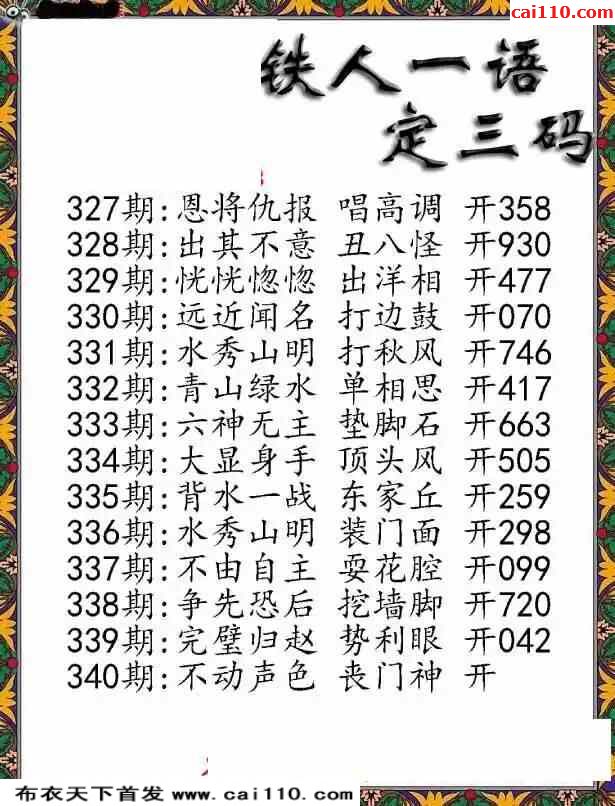 cai110.com
铁人一语
定三码
327期:恩将仇报 唱高调 开358
328期:出其不意 丑八怪 开930
329期:恍恍惚惚 出洋相 开477
330期:远近闻名 打边鼓 开070
331期:水秀山明 打秋风 开746
332期:青山绿水 单相思 开417
333期:六神无主 垫脚石 开663
334期:大显身手 顶头风 开505
335期:背水一战 东家丘 开259
336期:水秀山明 装门面 开298
337期:不由自主 耍花腔 开099
338期:争先恐后 挖墙脚 开720
339期:完璧归赵 势利眼 开042
340期:不动声色 丧门神 开
布衣天下首发 www.cai110.com